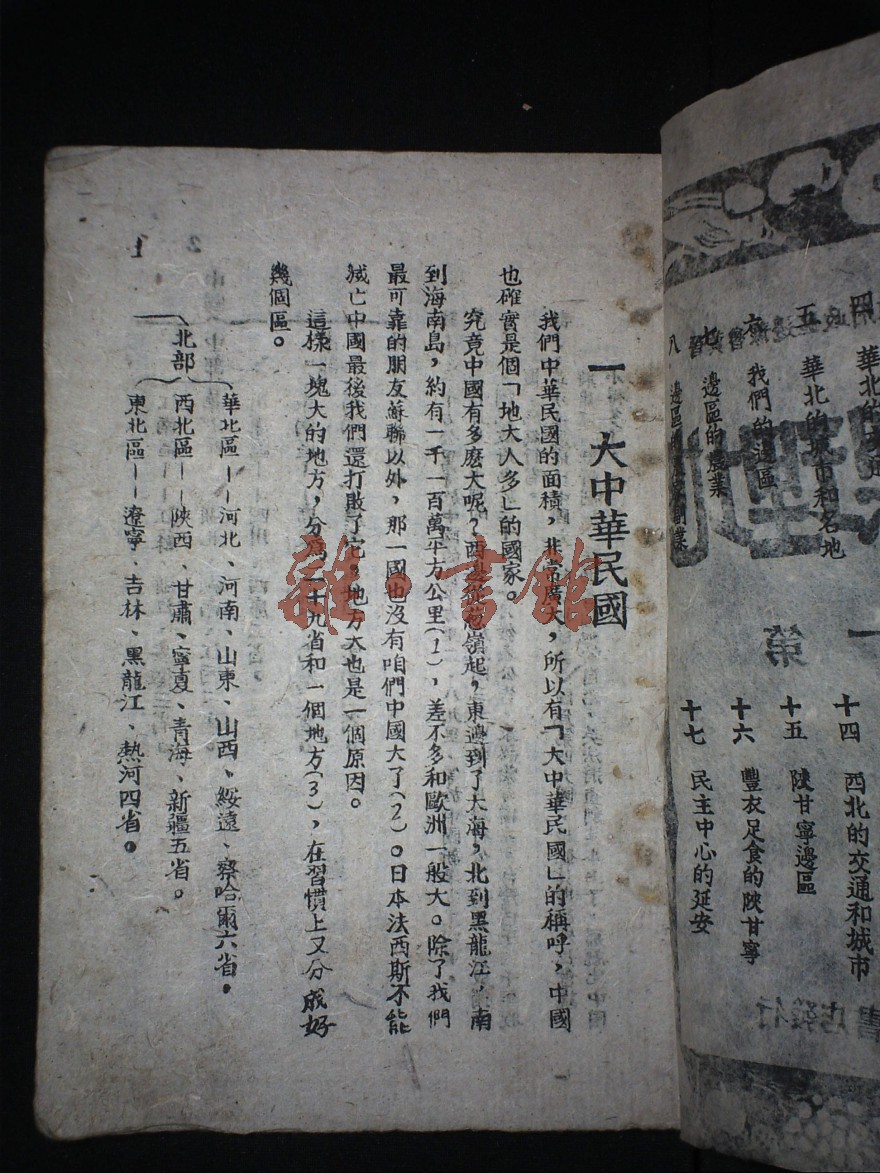 四 華北的交通
五 華北的城市和名地
六 我們的邊區
七 邊區的農業
八 邊區
業
第一
十四 西北的交通和城市
十五 陝甘寧邊區
十六 豐衣足食的陝甘寧
十七 民主中心的延安
書店發行
一 大中華民國
我們中華民國的面積，非常廣大，所以有「大中華民國」的稱呼，中國
也確實是個「地大人多」的國家。
究竟中國有多麽大呢？西邊從葱嶺起，東邊到了大海，北到黑龍江，南
到海南島，約有一千一百萬平方公里(1)，差不多和歐洲一般大。除了我們
最可靠的朋友蘇聯以外，那一國也沒有咱們中國大了(2)。日本法西斯不能
滅亡中國最後我們還打敗了它，地方大也是一個原因。
這樣一塊大的地方，分爲二十九省和一個地方(3)，在習慣上又分成好
幾個區。
北部
華北區——河北、河南、山東、山西、綏遠、察哈爾六省。
西北區——陝西、甘肅、寧夏、青海、新疆五省。
東北區——遼寧、吉林、黑龍江、熱河四省。
1
2
雜·書館